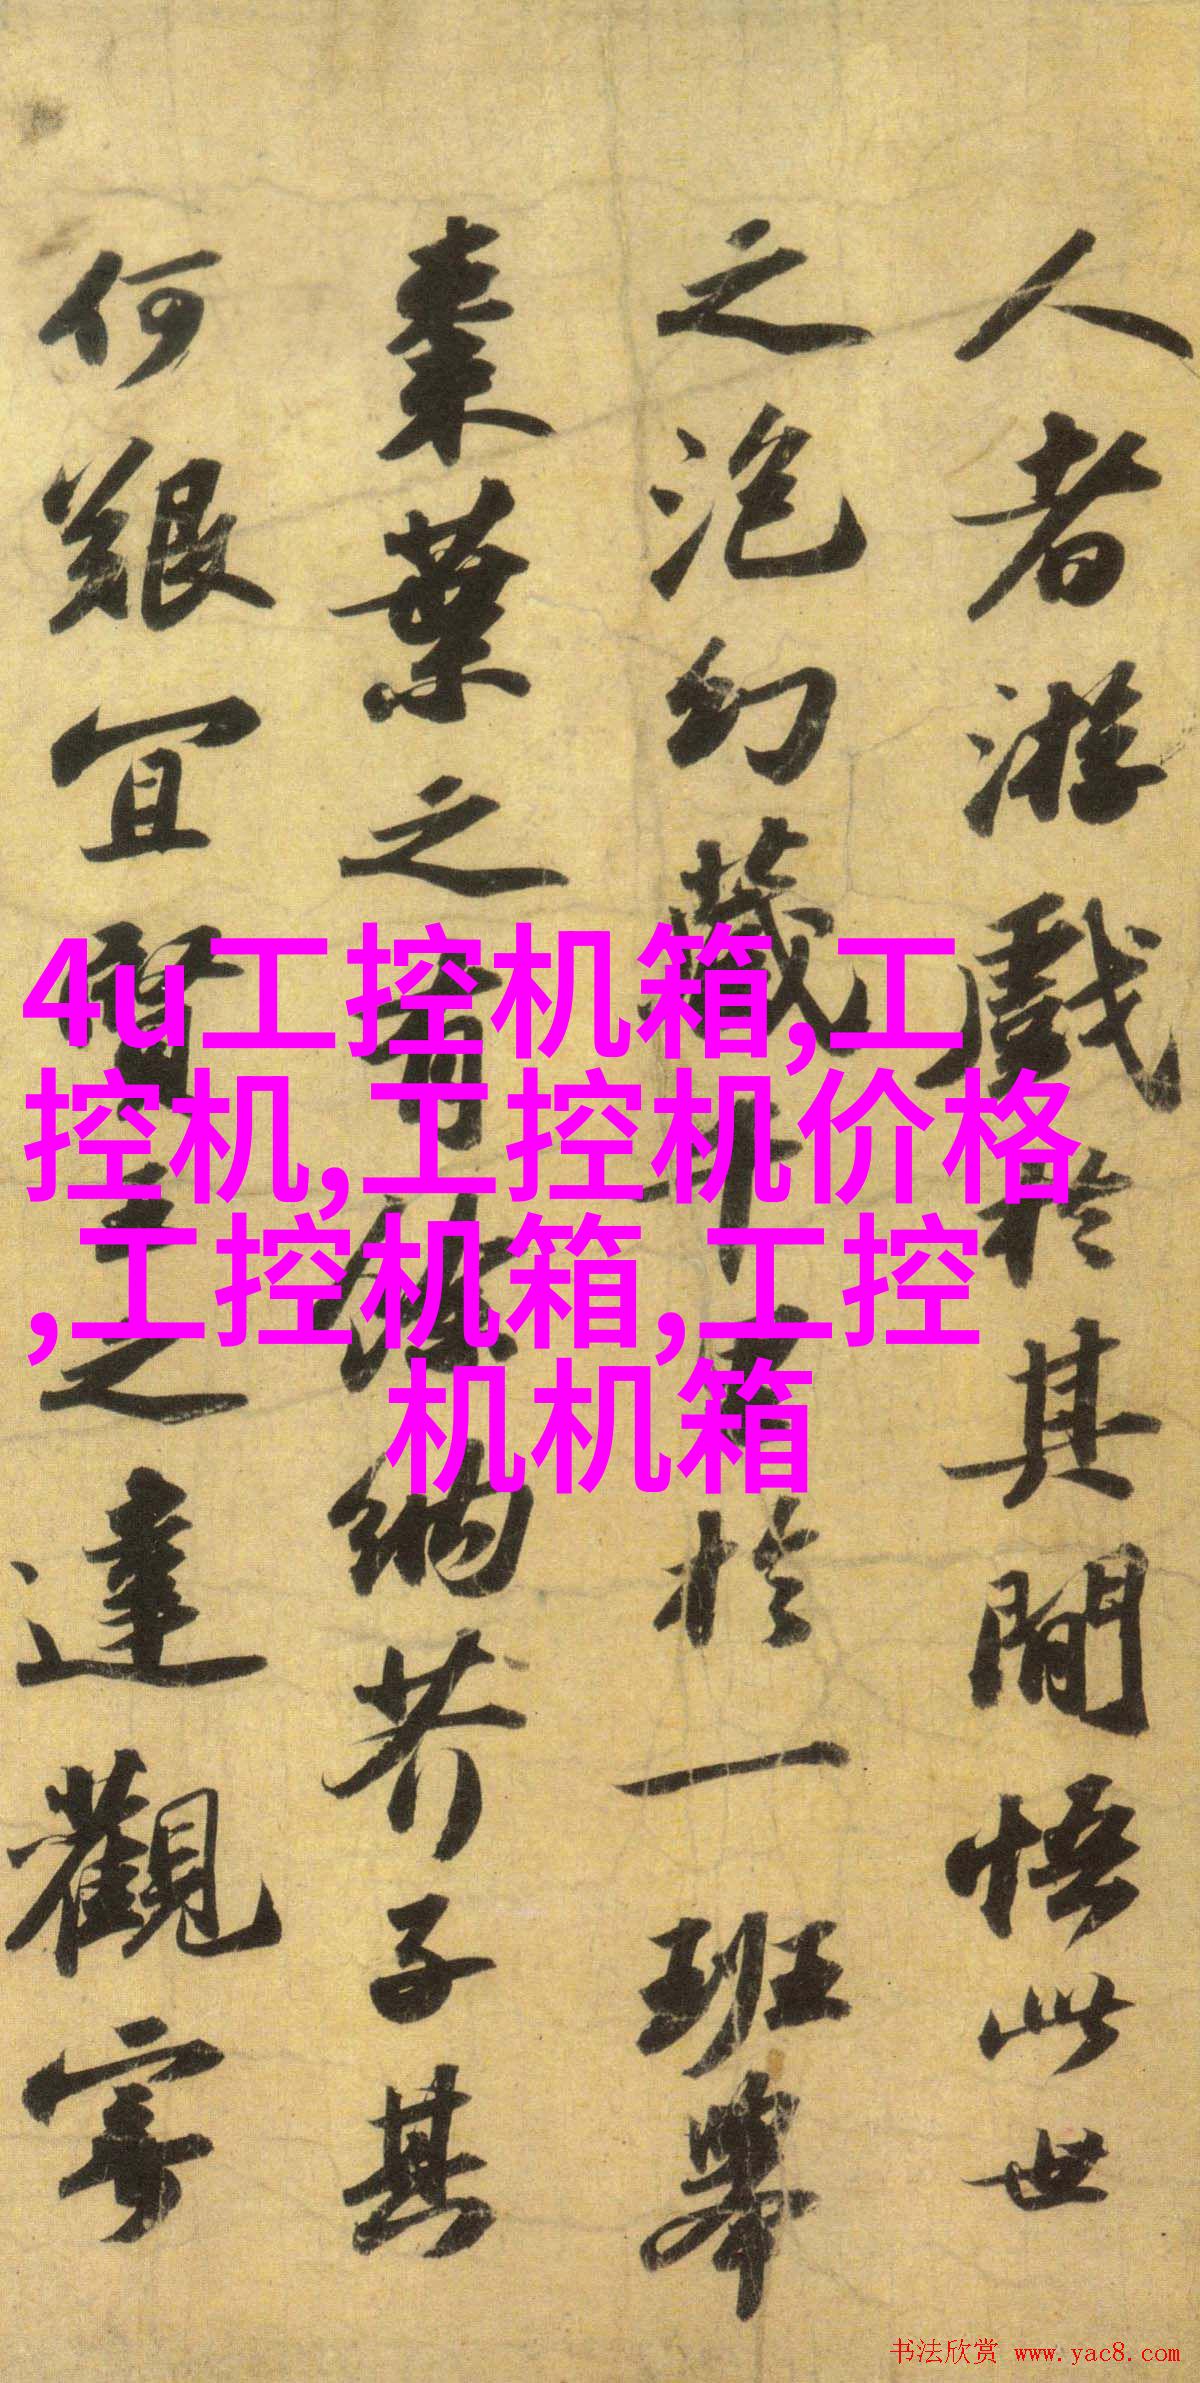 人者游戲於其間悟此世
之泡幻藏千里於一班舉
棗葉之有餘納芥子其
何艱宜賢王之達觀寄
4u工控机箱,工
控机,工控机价格
,工控机箱,工控
机机箱
书法欣赏 www.yac8.com